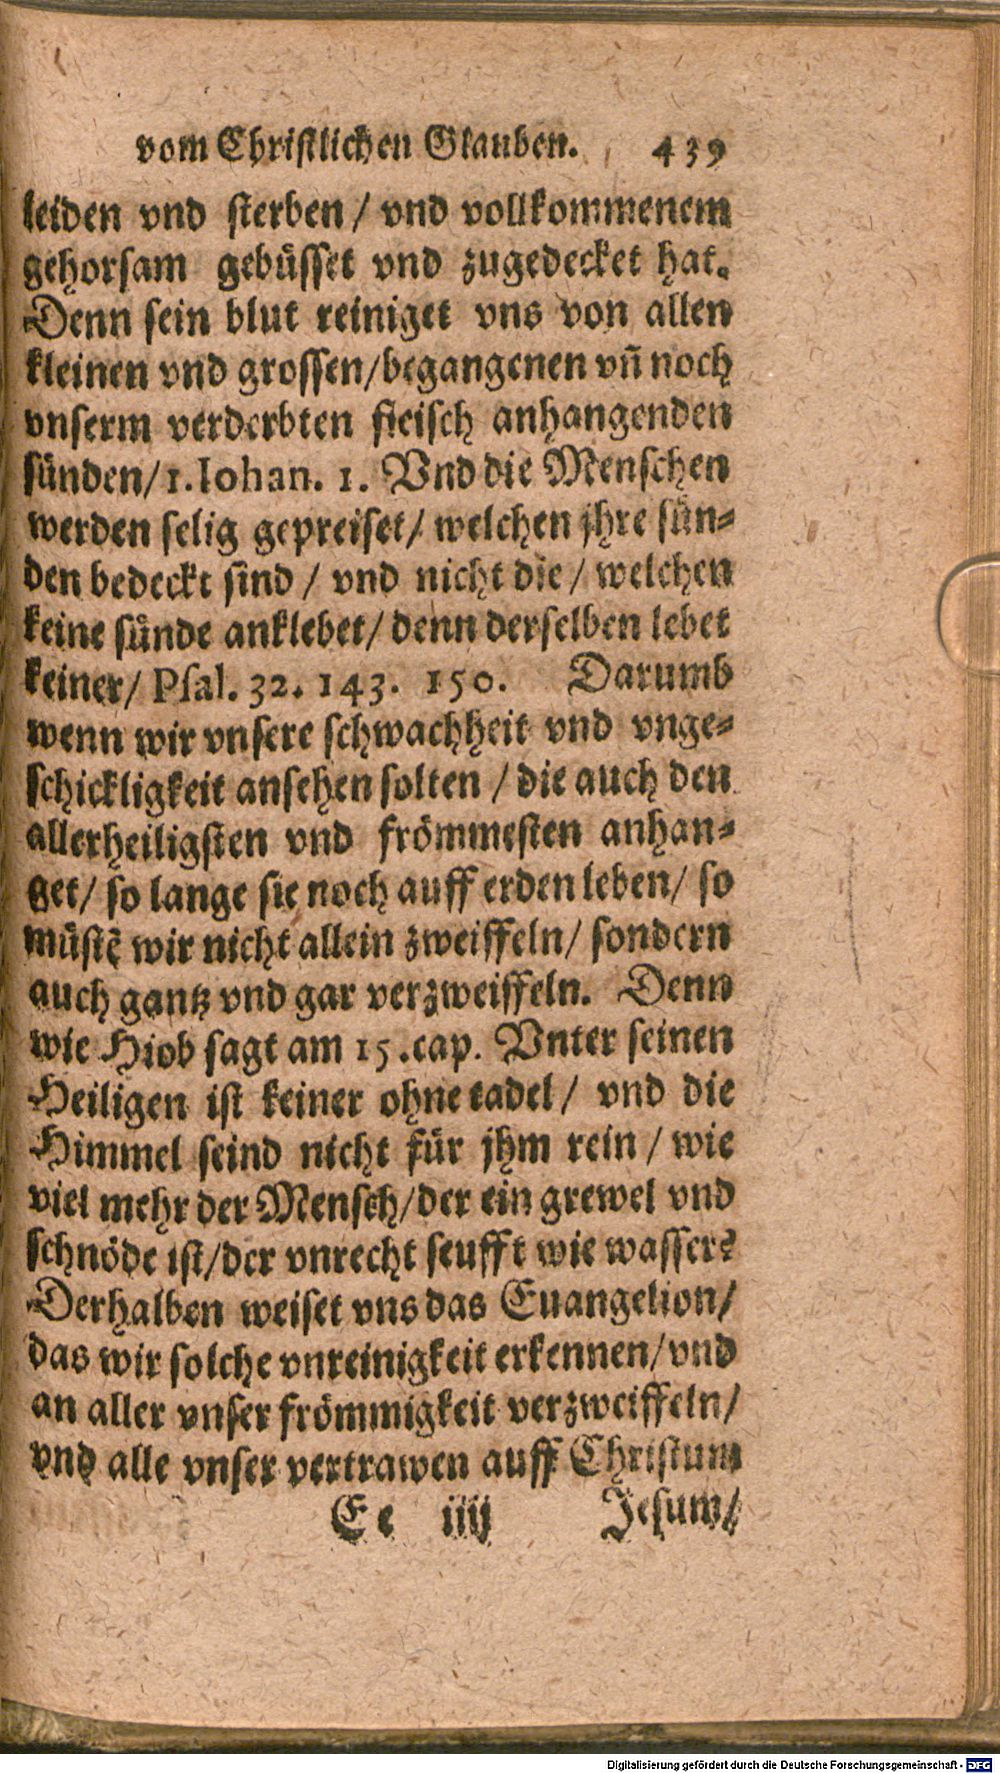 vom Christlichen Glauben. 439
leiden vnd sterben / vnd vollkommenem
gehorsam gebüsset vnd zugedecket hat.
Denn sein blut reiniget vns von allen
kleinen vnd grossen/begangenen vñ noch
vnserm verderbten fleisch anhangenden
sünden/1.Iohan. 1. Vnd die Menschen
werden selig gepreiset/ welchen jhre sün-
den bedeckt sind / vnd nicht die / welchen
keine sünde anklebet/ denn derselben lebet
keiner/ Psal. 32. 143. 150. Darumb
wenn wir vnsere schwachheit vnd vnge-
schickligkeit ansehen solten / die auch den
allerheiligsten vnd frömmesten anhan-
get/ so lange sie noch auff erden leben/ so
müstẽ wir nicht allein zweiffeln/ sondern
auch gantz vnd gar verzweiffeln. Denn
wie Hiob sagt am 15.cap. Vnter seinen
Heiligen ist keiner ohne tadel / vnd die
Himmel seind nicht für jhm rein / wie
viel mehr der Mensch/der ein grewel vnd
schnöde ist/der vnrecht seufft wie wasser?
Derhalben weiset vns das Euangelion/
das wir solche vnreinigkeit erkennen/vnd
an aller vnser frömmigkeit verzweiffeln/
vnd alle vnser vertrawen auff Christum
Ee iiij Jesum/
Digitalisierung gefördert durch die Deutsche Forschungsgemeinschaft - DFG